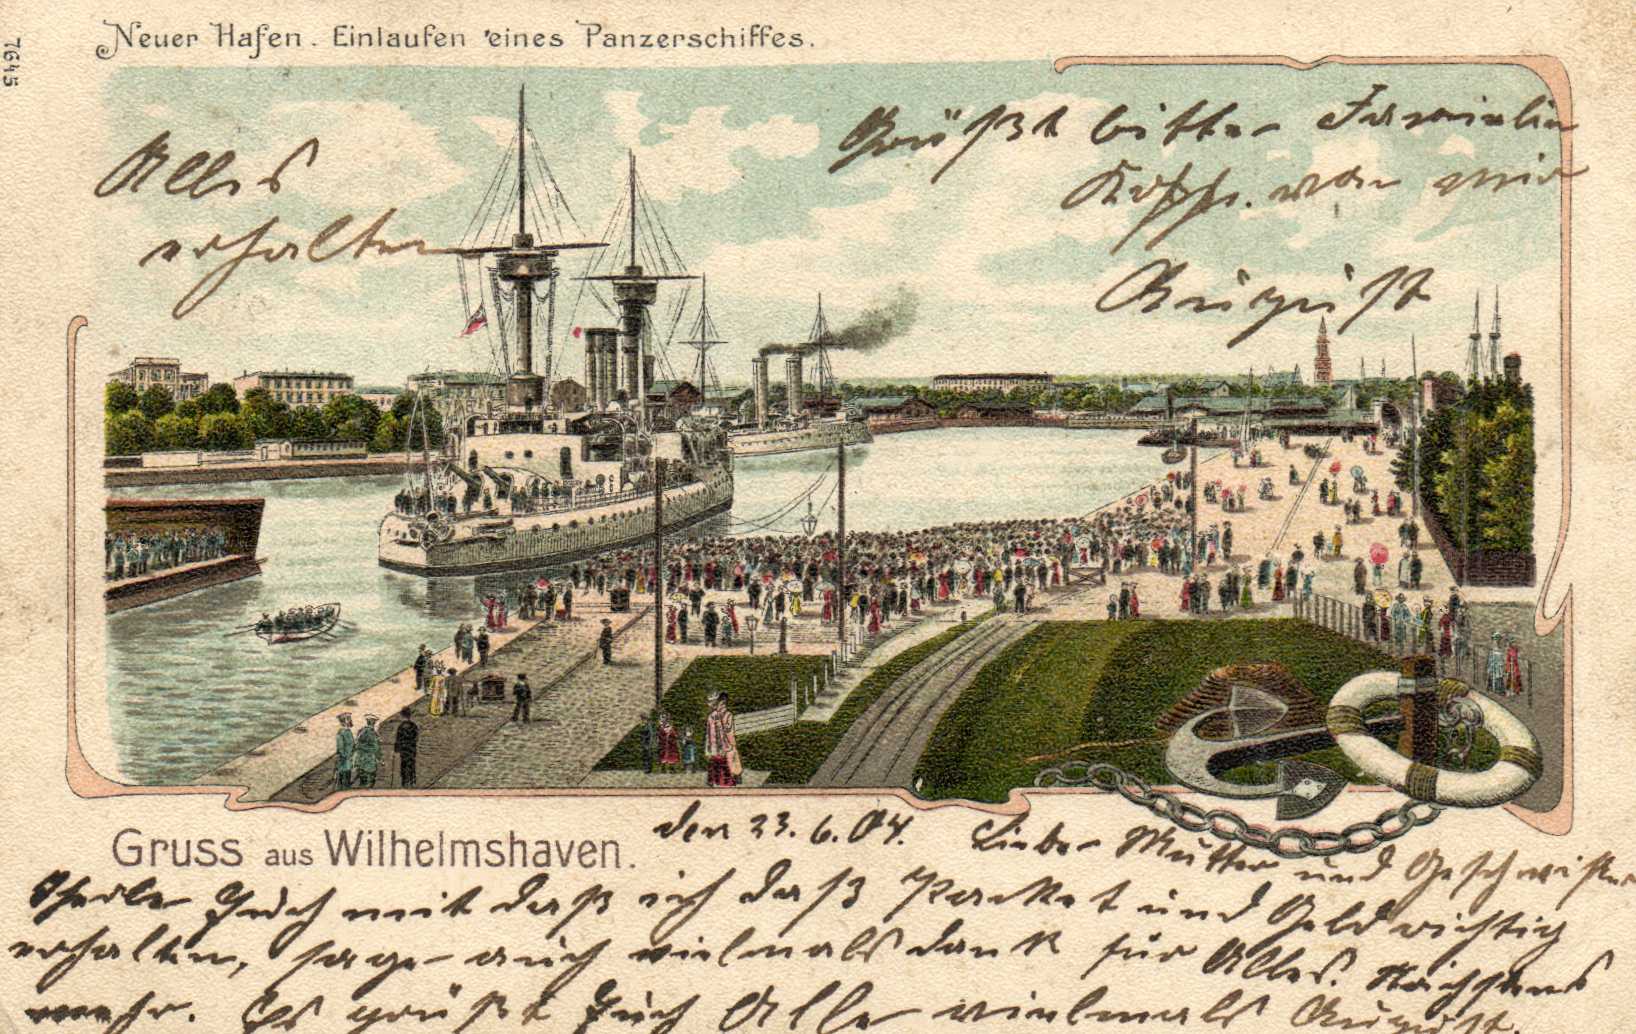 7645
Neuer Hafen. Einlaufen eines Panzerschiffes.
Alles
erhalten
Grüßt bitte Familie
Kopp. von mir
August
Gruss aus Wilhelmshaven.
den 23. 6. 04. Liebe Mutter und Geschwister
Theile Euch mit daß ich daß Packet und Geld richtig
erhalten, sage auch vielmals dank für Alles. Nächstens
mehr. Es grüßt Euch Alle vielmals August.